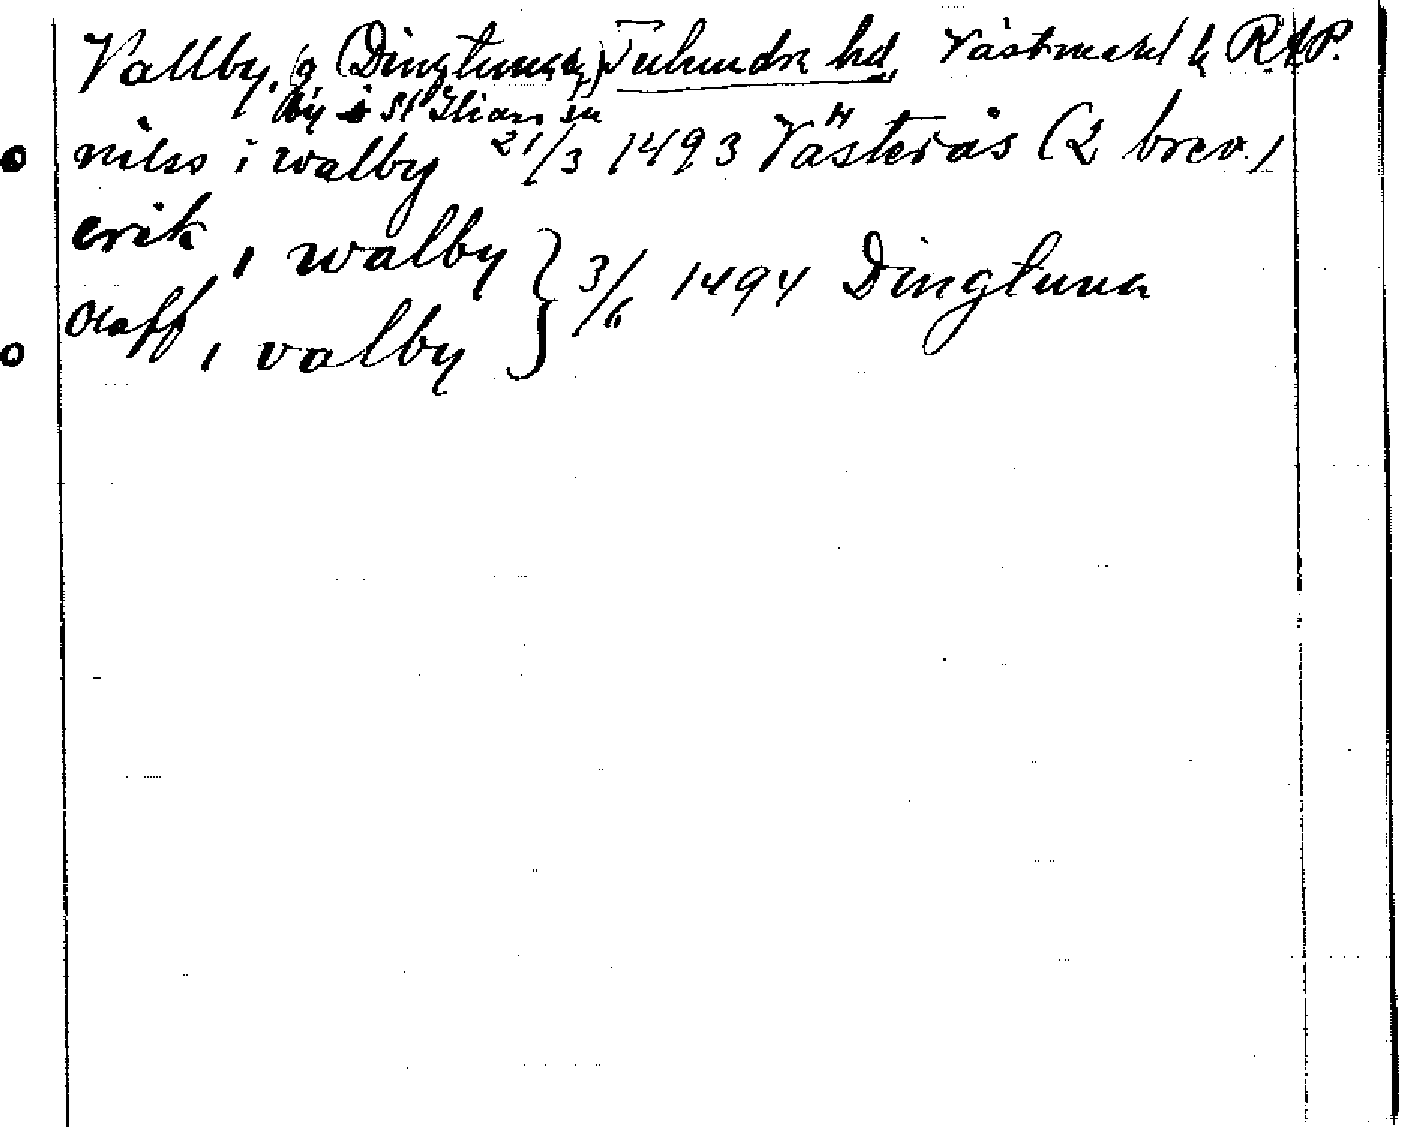 Vallby, (g Dingtuna sn,) Tuhundra hd, Västmanl l RAP.
by i St Ilian sn
nilss i walby 21/3 1493 Västerås (2 brev)
erik i walby } 3/6 1494 Dingtuna
Olaff i valby